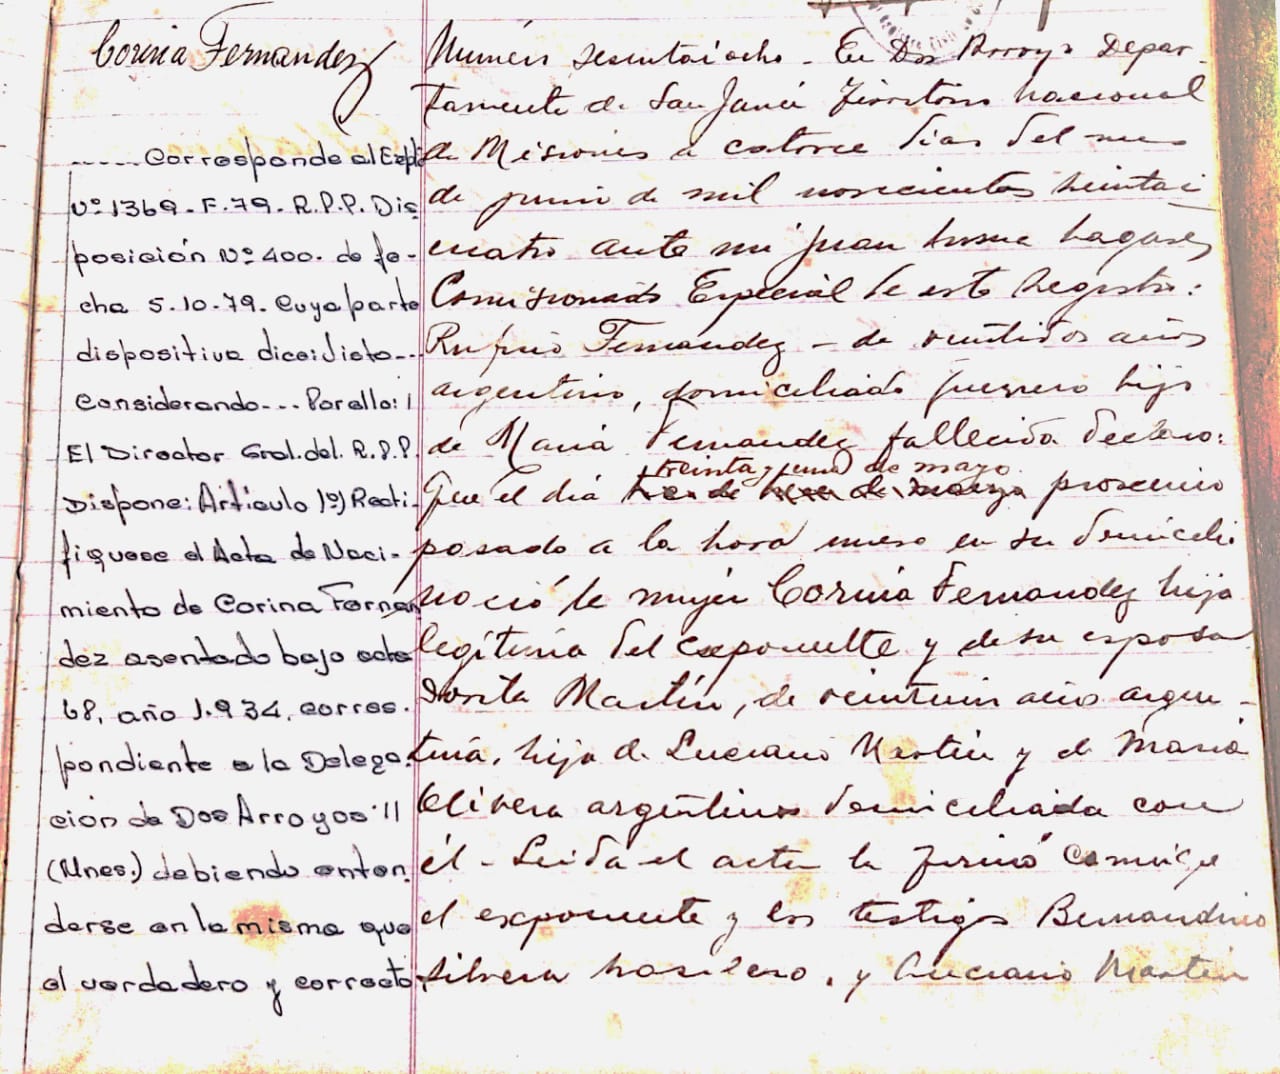 Corina Fernandez
------ Corresponde al Expte
Nº 1369-F.79-R.P.P. Dis
posición Nº 400. de fe-
cha 5.10-79. Cuya parte
dispositiva dice: Visto---
Considerando--- Por ello:
El Director Gral. del. R.P.P.
Dispone: Artículo 1º) Recti-
fiquese el Acta de Naci-
miento de Corina Fernan
dez asentado bajo acta
68, año 1.934, corres.
pondiente a la Delega.
cion de Dos Arroyos
(Mnes.) debiendo enten.
derse en la misma que
el verdadero y correcto
Numero sesentaiocho - En Dos Arroyos Depar-
tamento de San Javier Territorio Nacional
de Misiones a catorce dias del mes
de junio de mil novecientos treintai
cuatro ante mi Juan
Comisionado Especial de este Registro:
Rufino Fernandez - de veintidos años
argentino, domiciliado hijo
de Maria Fernandez fallecida declaro:
treinta y uno de mayo
Que el dia proximo
pasado a la hora nueve en su domicilio
nació la mujer Corina Fernandez hija
legitima del exponente y de su esposa
Martin, de veintiun año argen-
tina, hija de Luciano Martin y de Maria
Olivera argentinos domiciliada con
él - Leida el acta la firmó conmigo
el exponente y los testigos Bernardino
Silvera brasilero, y Luciano Martin